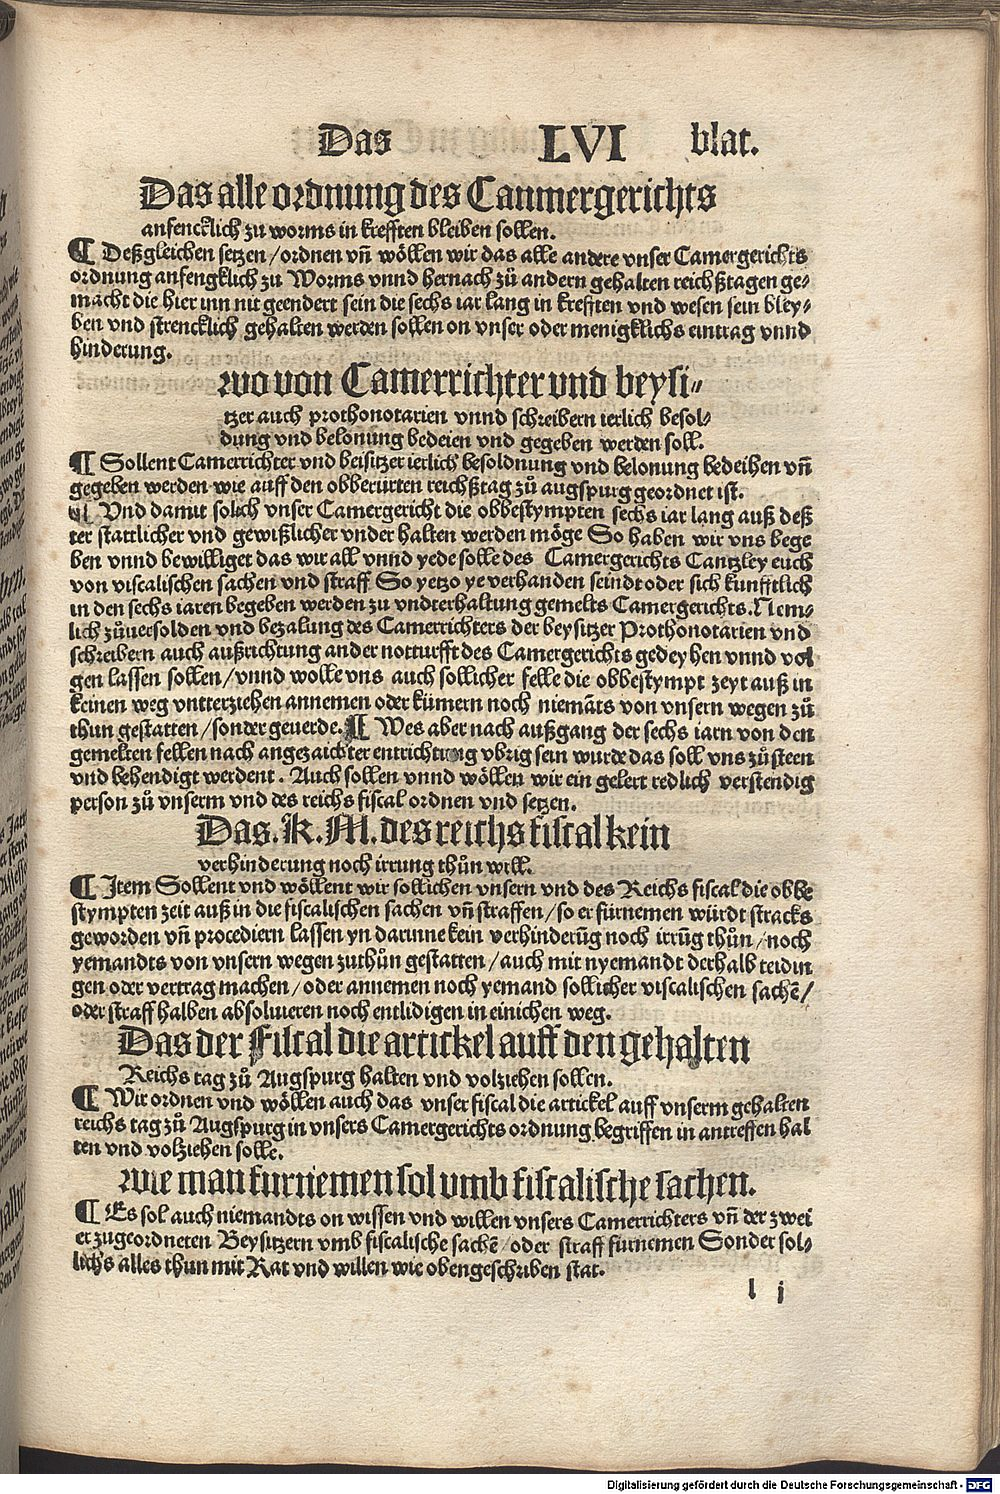 Das LVI blat.
Das alle ordnung des Caumergerichts
anfencklich zu worms in krefften bleiben sollen.
¶ Deßgleichen setzen / ordnen vñ wöllen wir das alle andere vnser Camergerichts
ordnung anfengklich zu Worms vnnd hernach zů andern gehalten reichßtagen ge⸗
macht die hier inn nit geendert sein die sechs iar lang in krefften vnd wesen sein bley⸗
ben vnd strencklich gehalten werden sollen on vnser oder menigklichs eintrag vnnd
hinderung.
wo von Camerrichter vnd beysi⸗
tzer auch prothonotarien vnnd schreibern ierlich besol⸗
dung vnd belonung bedeien vnd gegeben werden soll.
¶ Sollent Camerrichter vnd beisitzer ierlich besoldnung vnd belonung bedeihen vñ
gegeben werden wie auff den obberürten reichßtag zů augspurg geordnet ist.
¶ Vnd damit solich vnser Camergericht die obbestympten sechs iar lang auß deß
ter stattlicher vnd gewißlicher vnder halten werden möge So haben wir vns bege
ben vnnd bewilliget das wir all vnnd yede solle des Camergerichts Cantzley euch
von viscalischen sachen vnd straff So yetzo ye verhanden seindt oder sich kunfftlich
in den sechs iaren begeben werden zu vndterhaltung gemelts Camergerichts. Nem⸗
lich zůuersolden vnd bezalung des Camerrichters der beysitzer Prothonotarien vnd
schreibern auch außrichtung ander notturfft des Camergerichts gedeyhen vnnd vol
gen lassen sollen / vnnd wolle vns auch sollicher felle die obbestympt zeyt auß in
keinen weg vntterziehen annemen oder kümern noch niemãts von vnsern wegen zů
thun gestatten / sonder geuerde. ¶ Wes aber nach außgang der sechs iarn von den
gemelten fellen nach angezaichter entrichtung vbrig sein wurde das soll vns zů steen
vnd behendigt werdent. Auch sollen vnnd wöllen wir ein gelert redlich verstendig
person zů vnserm vnd des reichs fiscal ordnen vnd setzen.
Das. K. M. des reichs fiscal kein
verhinderung noch irrung thůn will.
¶ Item Sollent vnd wöllent wir sollichen vnsern vnd des Reichs fiscal die obbe
stympten zeit auß in die fiscalischen sachen vñ straffen / so er fürnemen würdt stracks
geworden vñ procediern lassen yn darinne kein verhinderũg noch irrũg thůn / noch
yemandts von vnsern wegen zuthůn gestatten / auch mit nyemandt derhalb teidin
gen oder vertrag machen / oder annemen noch yemand sollicher viscalischen sachẽ /
oder straff halben absoluieren noch entlidigen in einichen weg.
Das der Fiscal die artickel auff den gehalten
Reichs tag zů Augspurg halten vnd volziehen sollen.
¶ Wir ordnen vnd wöllen auch das vnser fiscal die artickel auff vnserm gehalten
reichs tag zů Augspurg in vnsers Camergerichts ordnung begriffen in antreffen hal
ten vnd volziehen solle.
wie man furniemen sol vmb fiscalische sachen.
¶ Es sol auch niemandts on wissen vnd willen vnsers Camerrichters vñ der zwei
er zugeordneten Beysitzern vmb fiscalische sachẽ / oder straff furnemen Sonder sol⸗
lichs alles thun mit Rat vnd willen wie obengeschriben stat.
l j
Digitalisierung gefördert durch die Deutsche Forschungsgemeinschaft - DFG